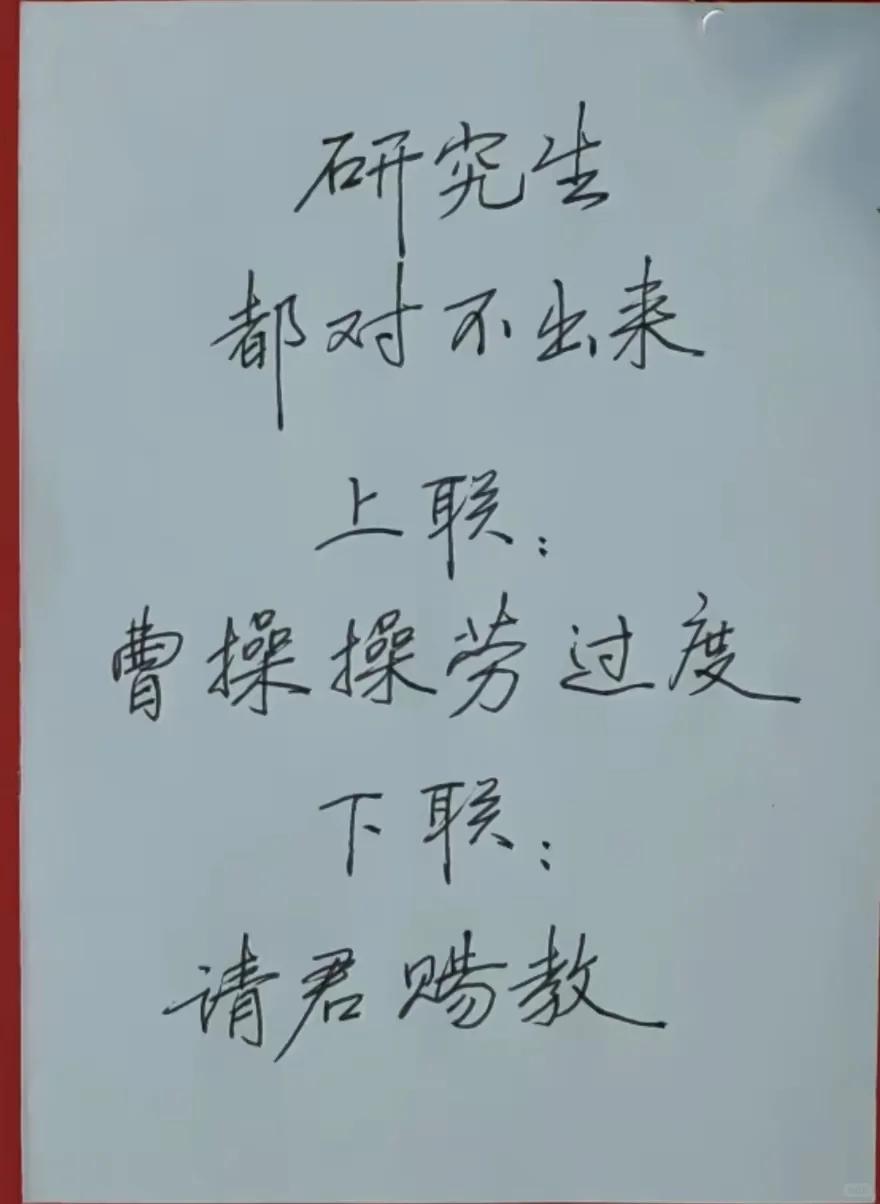 研究生
都对不出来
上联：
曹操操劳过度
下联：
请君赐教